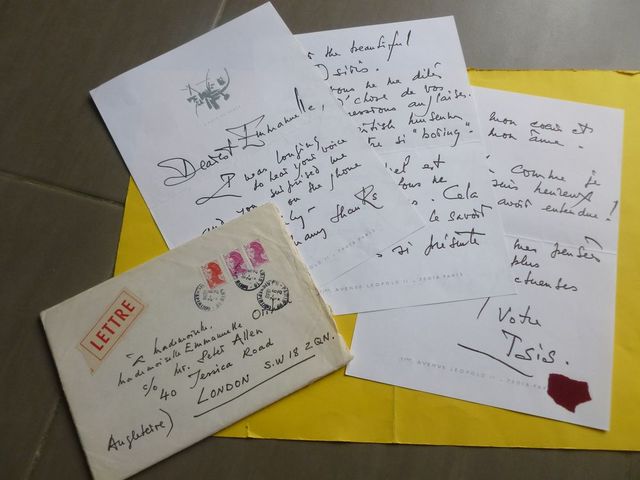 Dearest Emmanuelle,
I was longing
to hear your voice
and you surprised me
on the phone
many thanks
the beautiful
Osiris.
vous ne me dites
chose de vos
impressions anglaises.
British Museum
si "boring".
est
Cela
le savoir
si présente
AVENUE LEOPOLD II - 75016 PARIS
mon coeur et
mon âme.
Comme je
suis heureux
avoir entendue!
mes pensées
plus
Votre
Isis.
AVENUE LEOPOLD II - 75016 PARIS
LETTRE
à Mademoiselle,
Mademoiselle Emmanuelle
c/o Mr. Peter Allen
40 Jessica Road
LONDON S.W 18 2QN.
Angleterre)